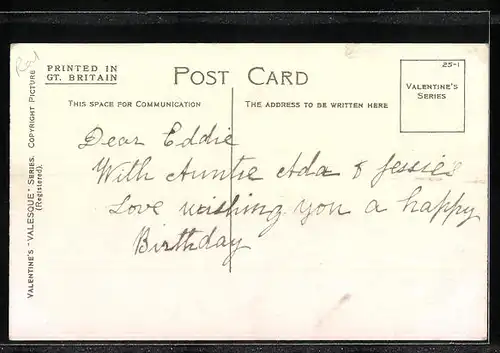 Ral
PRINTED IN
GT. BRITAIN
POST CARD
25-1
VALENTINE'S
SERIES
THIS SPACE FOR COMMUNICATION
THE ADDRESS TO BE WRITTEN HERE
VALENTINE'S "VALESQUE" SERIES. COPYRIGHT PICTURE
(Registered).
Dear Eddie
With Auntie Ada & Jessie's
Love wishing you a happy
Birthday